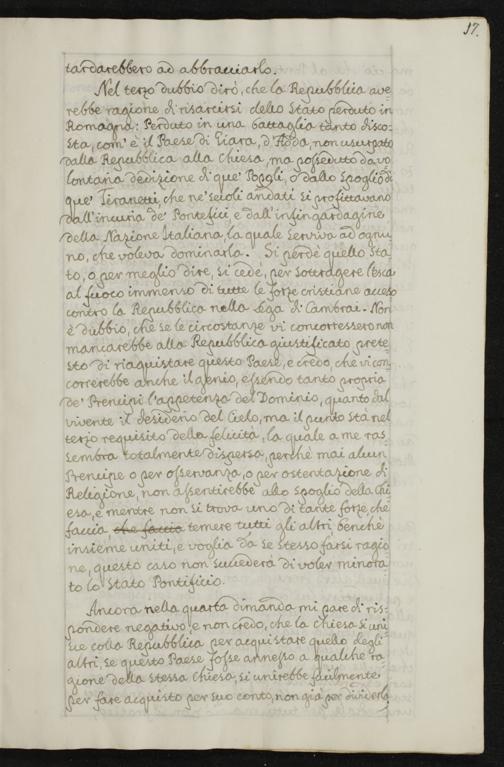 17.
tardarebbero ad abbracciarlo.
Nel terzo dubbio dirò, che la Repubblica ave
rebbe ragione di risarcirsi dello Stato perduto in
Romagna: Perduto in una battaglia tanto disco-
sta, com' è il Paese di Giara, d'Adda, non usurpato
dalla Repubblica alla Chiesa, ma posseduto da vo
lontaria dedizione di que' Popoli, o dallo Spoglio di
que' Tiranetti, che ne' secoli andati si profittavano
dall'incuria de' Pontefici, e dall'infingardagine
della Nazione Italiana, la quale serviva ad ognu-
no, che voleva dominarla. Si perdè quello Sta-
to, o per meglio dire, si cedè, per sottragere l'esca
al fuoco immenso di tutte le forze cristiane acceso
contro la Repubblica nella Lega di Cambrai. Non
è dubbio, che se le circostanze vi concorressero non
mancarebbe alla Repubblica giustificato prete-
sto di riaquistare questo Paese, e credo, che vi con-
correrebbe anche il genio, essendo tanto propria
de' Prencipi l'appetenza del Dominio, quanto dal
vivente il desiderio del Cielo, ma il punto stà nel
terzo requisito della felicità, la quale a me ras-
sembra totalmente dispersa, perchè mai alcun
Prencipe o per osservanza, o per ostentazione di
Religione, non assentirebbe allo spoglio della Chi
esa, e mentre non si trova uno di tante forze, che
faccia che faccia temere tutti gli altri benchè
insieme uniti, e voglia da se stesso farsi ragio
ne, questo caso non succederà di voler minora-
to lo Stato Pontificio.
Ancora nella quarta dimanda mi pare di ris-
pondere negativo, e non credo, che la Chiesa si unis
se colla Repubblica per acquistare quello degli
altri, se questo Paese fosse annesso a qualche ra-
gione della stessa Chiesa, si unirebbe facilmente
per fare acquisto per suo conto, non già per dividerlo